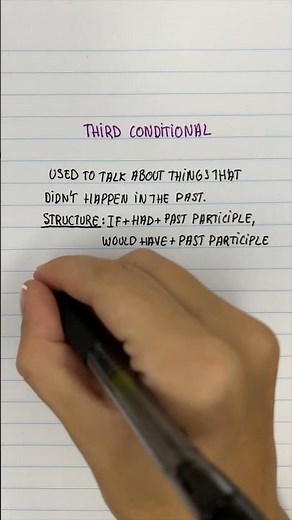 THIRD CONDITIONAL
USED TO TALK ABOUT THINGS THAT
DIDN'T HAPPEN IN THE PAST.
STRUCTURE: IF + HAD + PAST PARTICIPLE,
WOULD HAVE + PAST PARTICIPLE